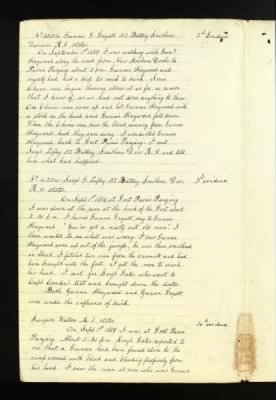 Gunner G. Fryatt 32 Battery Southern
3rd Evidence
Division R.A. states
On September 1st 1889 I was walking with Gunr
Hayward along the road from New Harbour Docks to
Pasir Panjang about 2 pm. Gunner Hayward and
myself had had a drop too much to drink. Some
Chinamen began throwing stones at us for no reason
that I know of, as we had not done anything to them.
One Chinaman came up and hit Gunner Hayward with
a stick on the head and Gunner Hayward fell down.
When the Chinamen saw the blood coming from Gunner
Hayward's head they ran away. I assisted Gunner
Hayward back to Fort Pasir Panjang. I met
Sergt Lofty 32 Battery Southern Divn R.A. and told
him what had happened.
Sergt G. Lofty 32 Battery Southern Divn
R.A. states.
On Sept 1st 1889 at Fort Pasir Panjang
I was down at the sea at the back of the Fort about
2.30 p.m. I heard Gunner Fryatt say to Gunner
Hayward "You've got a nasty cut old man". I
then went to see what was wrong. I saw Gunner
Hayward come out of the jungle; he was then covered
in blood. I fetched two men from the and
had him brought into the fort. I got the men to wash
his head. I sent for Sergt who went to
Capt and brought down the doctor.
Both Gunner Hayward and Gunner Fryatt
were under the influence of drink.
Surgeon M.S. states.
On Sept 1st 1889 I was at Fort Pasir
Panjang. About 2.30 p.m. Sergt reported to
me that a Gunner had been found close to the
camp covered with blood and bleeding profusely from
his head. I saw the man at once who was Gunner